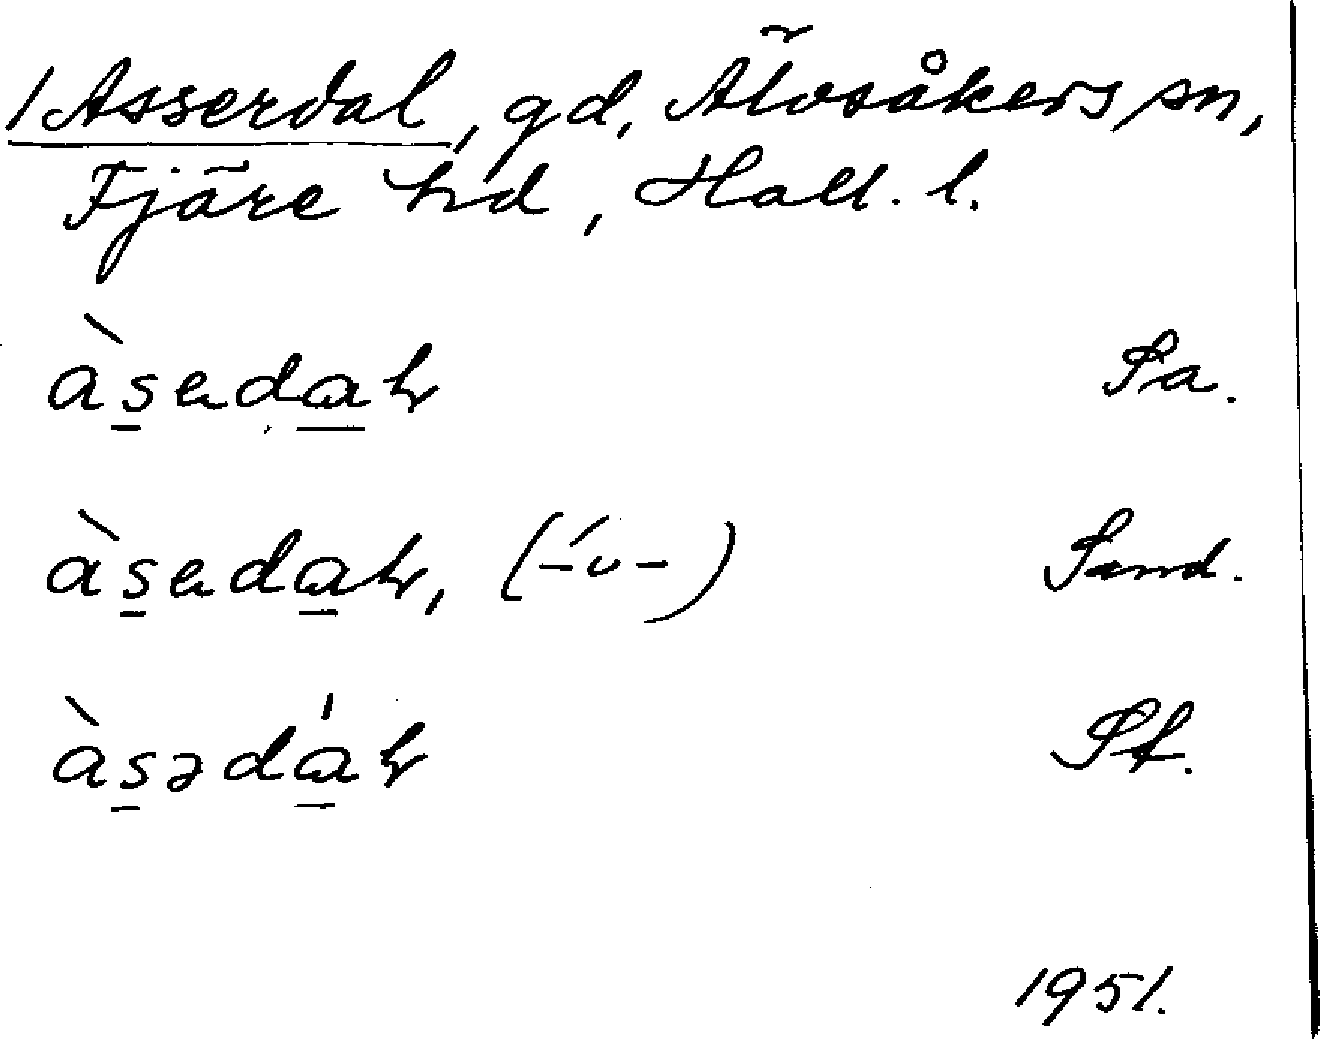 1 Asserdal, gd, Älvsåkers sn,
Fjäre hd, Hall. l.
àsedaɫ Sa.
àsedaɫ, (-́ ᴗ -) Sand.
àsədáɫ St.
1951.